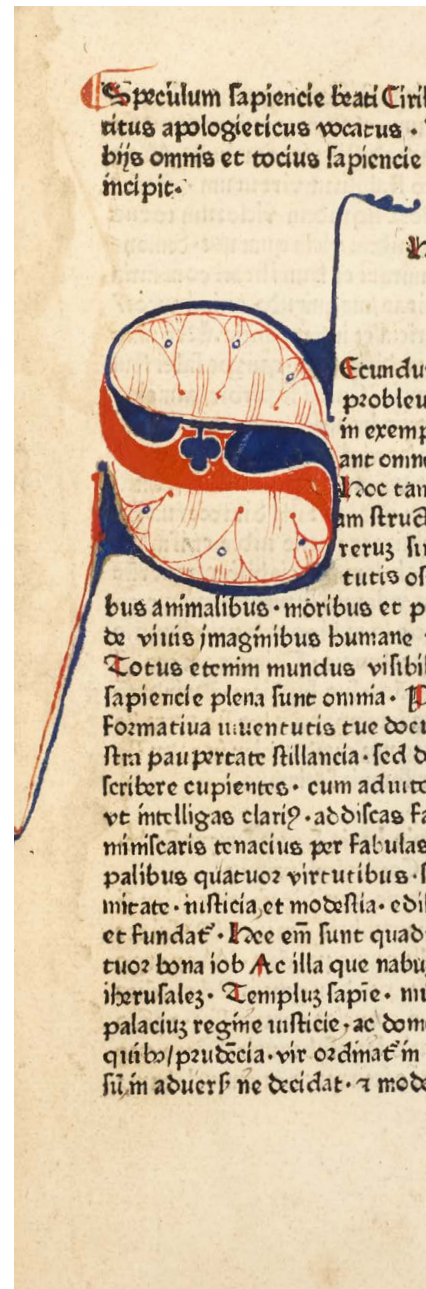 Speculum sapiencie beati Ciril
titus apologieticus vocatus .
bijs omnis et tocius sapiencie
incipit.
S
Ecundu
probleu
in exemp
ant omne
Hoc tam
am struc
reruz sin
tutis of
bus animalibus . moribus et p
de viuis jmaginibus humane
Totus etenim mundus visibil
sapiencie plena sunt omnia .
Formatiua iuuentutis tue docu
stra paupertate stillancia . sed d
scribere cupientes . cum aduite
vt intelligas clariꝰ . addiscas fa
miniscaris tenacius per fabulas
palibus quatuor virtutibus . s
mitate . iusticia, et modestia . edi
et fundat̉ . Hee em̄ sunt quad
tuor bona iob Ac illa que nabu
iherusalez . Templuz sapīe . mu
palaciuz regine iusticie, ac dom
quibꝰ/prudēcia . vir ordinat̉ in
sū in aduers̉ ne decidat . ⁊ mode